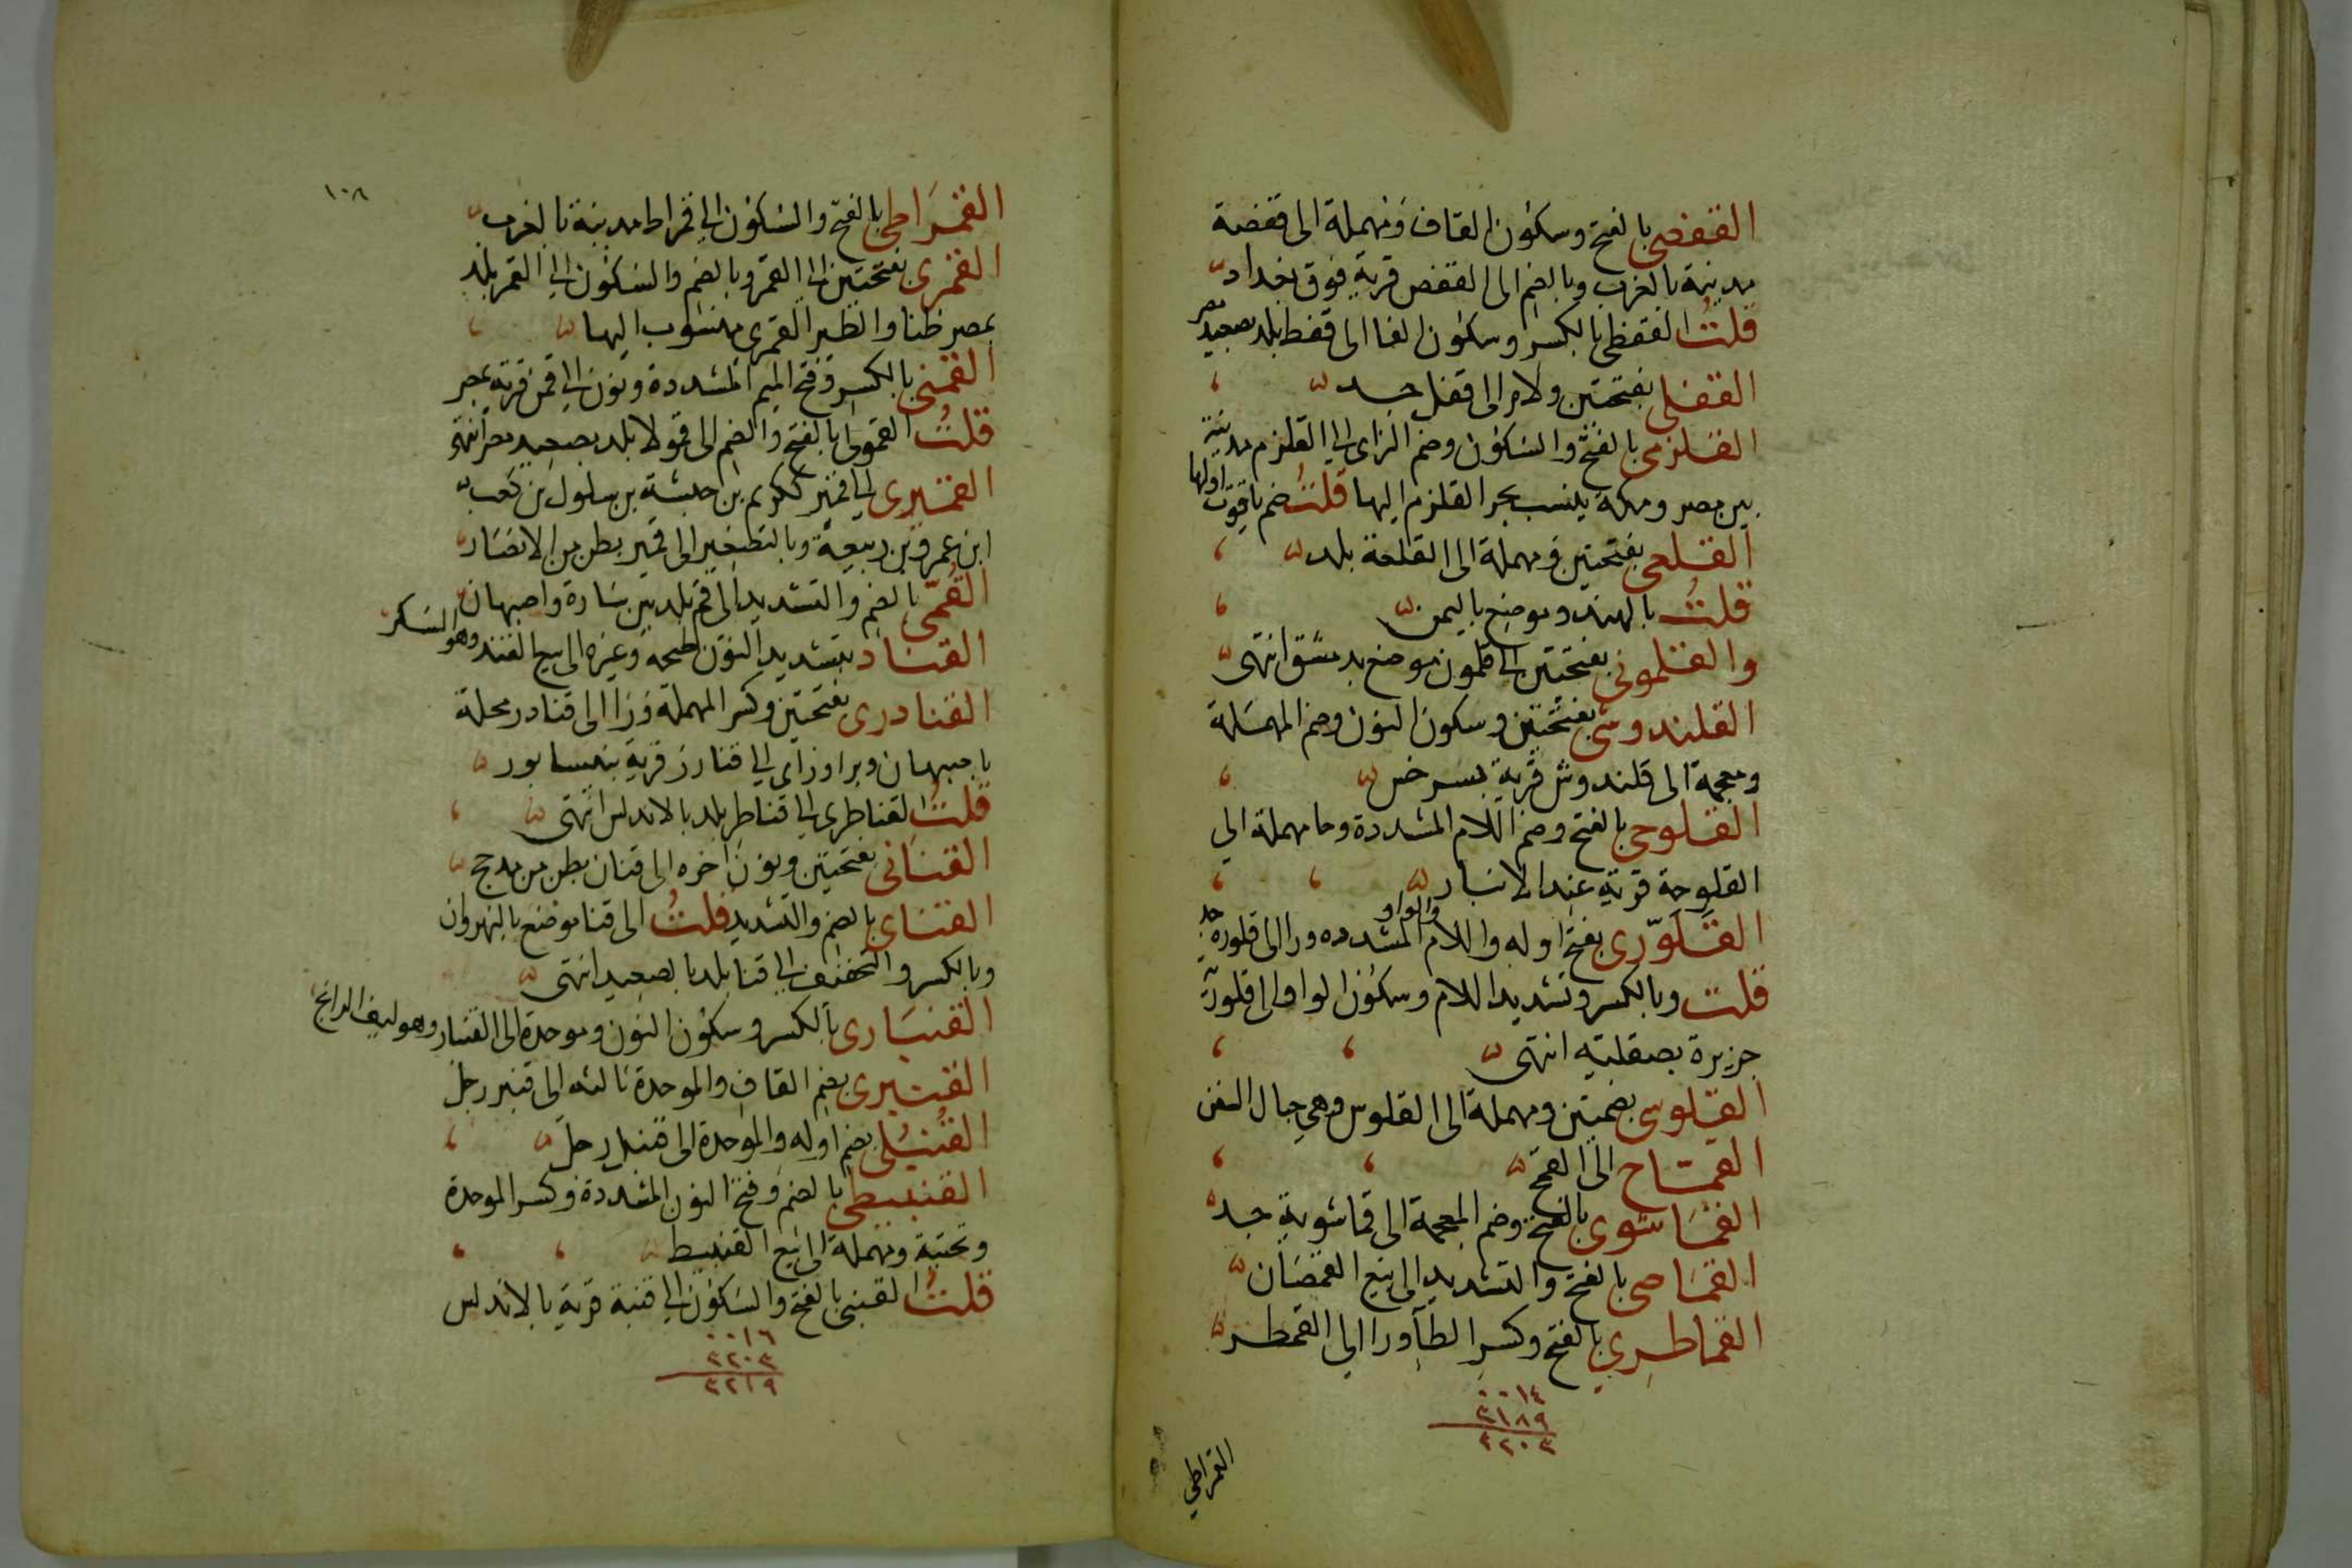 القفصي بالفتح وسكون القاف ومهملة الى قفصة
مدينة بالغرب وبالضم الى القفص قرية فوق بغداد
قلت القفطي بالكسر وسكون الفا الى قفط بلد بصعيد مصر
القفلي بفتحتين ولام الى قفل جد
القلزمي بالفتح والسكون وضم الزاى الى القلزم مدينة
بين مصر ومكة ينسب بحر القلزم اليها قلت ضم ياقوت اولها
القلعي بفتحتين ومهملة الى القلعة بلد
قلت بالهند وموضع باليمن
والقلموني بفتحتين الى قلمون موضع بدمشق انتهى
القلندوشي بفتحتين وسكون النون وضم المهملة
ومعجمة الى قلندوش قرية بسرخس
القلوحي بالفتح وضم اللام المشددة وحا مهملة الى
القلوحة قرية عند الانبار
القلوري بفتح اوله واللام والواو المشدده ورا الى قلوره جد
قلت وبالكسر وتشديد اللام وسكون الواو الى قلورية
جزيرة بصقلية انتهى
القلوسي بضمتين ومهملة الى القلوس وهي حبال السفن
القماح الى القمح
القماشوى بالفتح وضم المعجمة الى قماشوية جد
القماصي بالفتح والتشديد الى بيع القمصان
القماطري بالفتح وكسر الطآ ورا الى القمطر
٠٠١٤
٣١٨٩
٣٢٠٣
القمراطي
١٠٨
القمراطي بالفتح والسكون الى قمراط مدينة بالغرب
القمري بفتحتين الى القمر وبالضم والسكون الى القمر بلد
بمصر ظنا والطير القمري منسوب اليها
القمني بالكسر وفتح الميم المشددة ونون الى قمن قرية بمصر
قلت القمولى بالفتح والضم الى قمولا بلد بصعيد مصر انتهى
القميري الى قمير ككريم بن حبشية بن سلول بن كعب
ابن عمرو بن ربيعة وبالتصغير الى قمير بطن من الانصار
القمي بالضم والتشديد الى قم بلد بين ساوة واصبهان
القناد بتشديد النون لطحه وغيره الى بيع القند وهو السكر
القنادري بفتحتين وكسر المهملة ورا الى قنادر محلة
باصبهان وبرا وزاي الى قنارز قرية بنيسابور
قلت القناطري الى قناطر بلد بالاندلس انتهى
القناني بفتحتين ونون آخره الى قنان بطن من مدحج
القناي بالضم والتشديد قلت الى قنا موضع بالنهروان
وبالكسر والتخفيف الى قنا بلد بالصعيد انتهى
القنباري بالكسر وسكون النون وموحدة الى القنبار وهو ليف الرانج
القنبري بضم القاف والموحدة ثالثه الى قنبر رجل
القنبلي بضم اوله والموحدة الى قنبل رجل
القنبيطي بالضم وفتح النون المشددة وكسر الموحدة
وتحتية ومهملة الى بيع القنبيط
قلت القنبي بالفتح والسكون الى قنبة قرية بالاندلس
٠٠١٦
٣٢٠٣
٣٢١٩